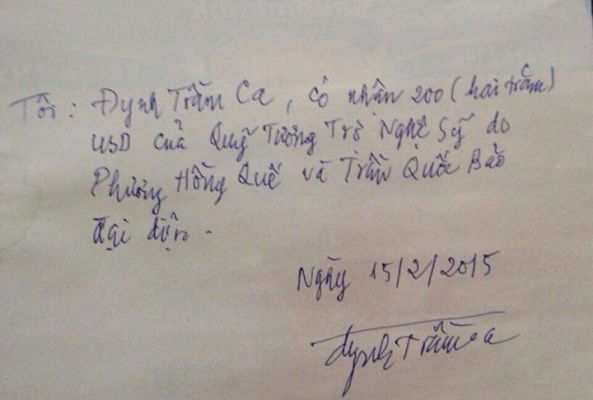 Tôi: Đynh Trầm Ca, có nhận 200 (hai trăm)
USD của Quỹ Tương Trợ Nghệ Sỹ do
Phương Hồng Quế và Trần Quốc Bảo
đại diện.
Ngày 15/2/2015
Đynh Trầm Ca